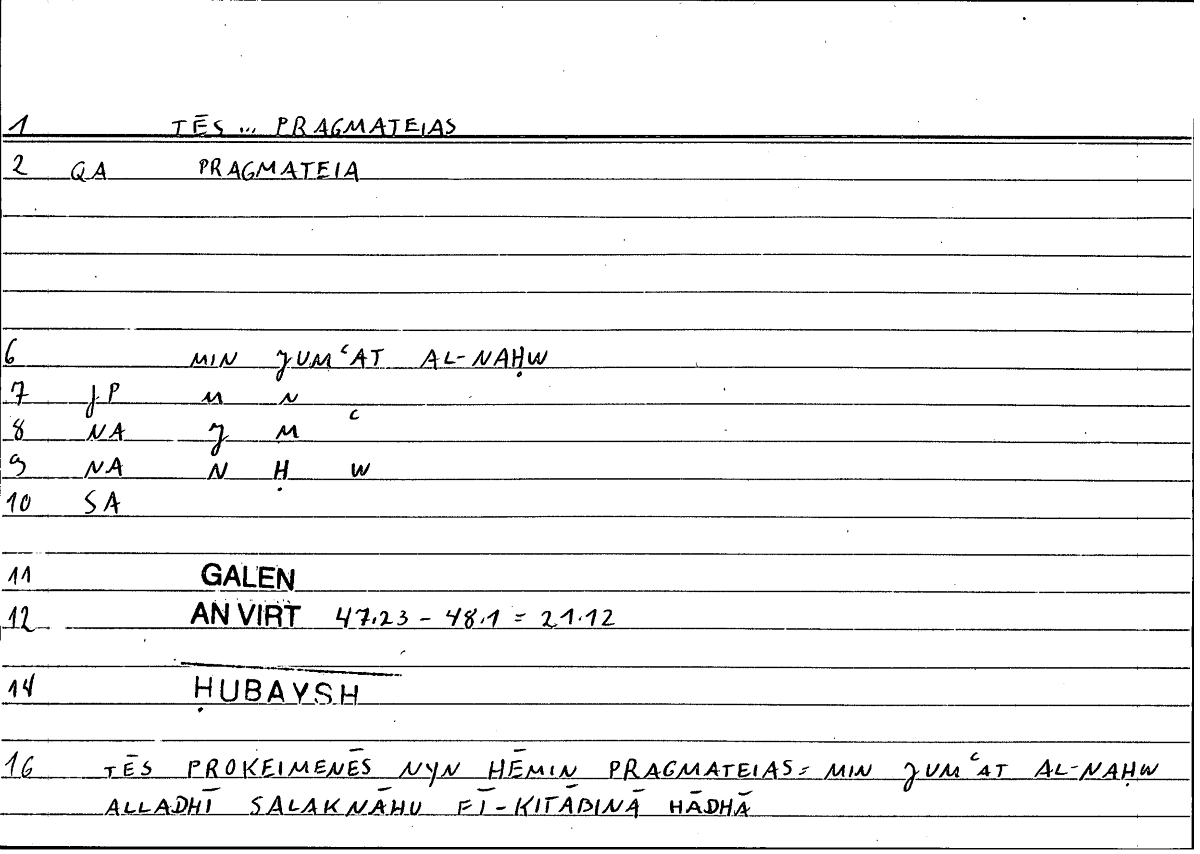 1 TĒS ... PRAGMATEIAS
2 QA PRAGMATEIA
6 MIN JUMʿAT AL-NAḤW
7 JP M N
8 NA J M ʿ
9 NA N Ḥ W
10 SA
11 GALEN
12 AN VIRT 47.23 - 48.1 = 21.12
14 ḤUBAYSH
16 TĒS PROKEIMENĒS NYN HĒMIN PRAGMATEIAS = MIN JUMʿAT AL-NAḤW
ALLADHĪ SALAKNĀHU FĪ-KITĀBINĀ HĀDHĀ